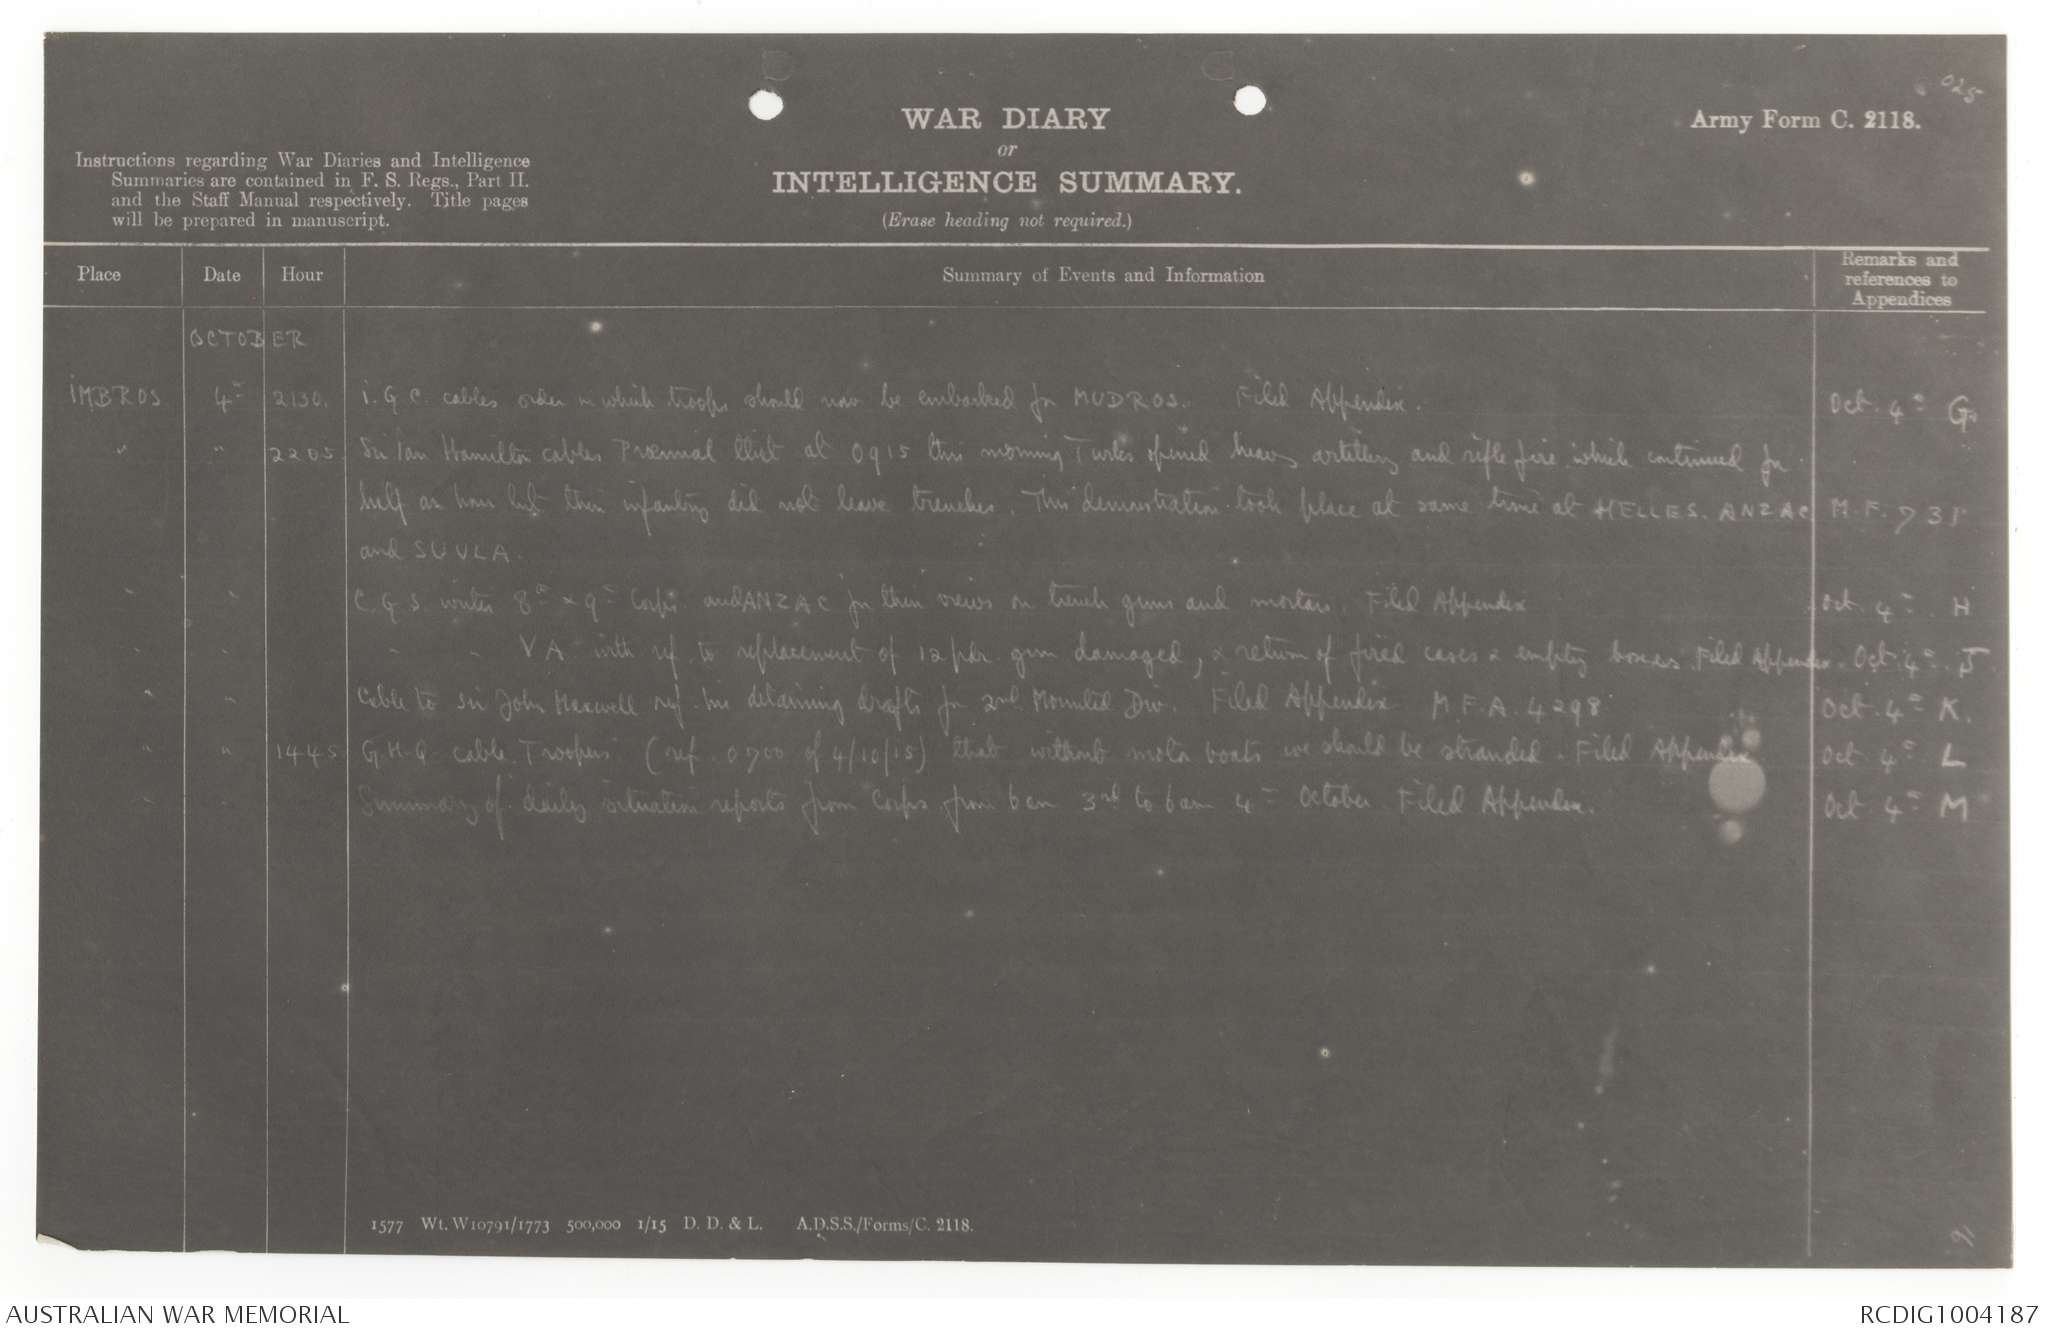 025
WAR DIARY
or
INTELLIGENCE SUMMARY.
(Erase heading not required.)
Army Form C. 2118.
Instructions regarding War Diaries and Intelligence
Summaries are contained in F. S. Regs., Part II.
and the Staff Manual respectively. Title pages
will be prepared in manuscript.
Place Date Hour Summary of Events and Information Remarks and references to Appendices
OCTOBER
IMBROS 4th 2130. I.G.C. cables order in which troops should now be embarked for MUDROS. Filed Appendix. Oct. 4th G.
" " 2205. Sir Ian Hamilton cables Proemial that at 0915 this morning Turks opened heavy artillery and rifle fire which continued for
half an hour but their infantry did not leave trenches. This demonstration took place at same time at HELLES. ANZAC M.F. 731
and SUVLA.
" " C.G.S. writes 8th & 9th Corps and ANZAC for their views on trench guns and mortars. Filed Appendix Oct 4th H
" " " " V A with ref. to replacement of 12 pdr. gun damaged, & return of fired cases & empty boxes. Filed Appendix. Oct. 4th J
" " Cable to Sir John Maxwell ref. his detaining drafts for 2nd Mounted Div. Filed Appendix M.F.A. 4298 Oct. 4th K.
" " 1445. G.H.Q. cable Troopers (ref. 0700 of 4/10/15) that without motor boats we should be stranded. Filed Appendix Oct 4th L
" " Summary of daily situation reports from Corps from 6 am 3rd to 6 am 4th October. Filed Appendix. Oct 4th M
1577 Wt. W10791/1773 500,000 1/15 D. D. & L. A.D.S.S./Forms/C. 2118.
AUSTRALIAN WAR MEMORIAL RCDIG1004187